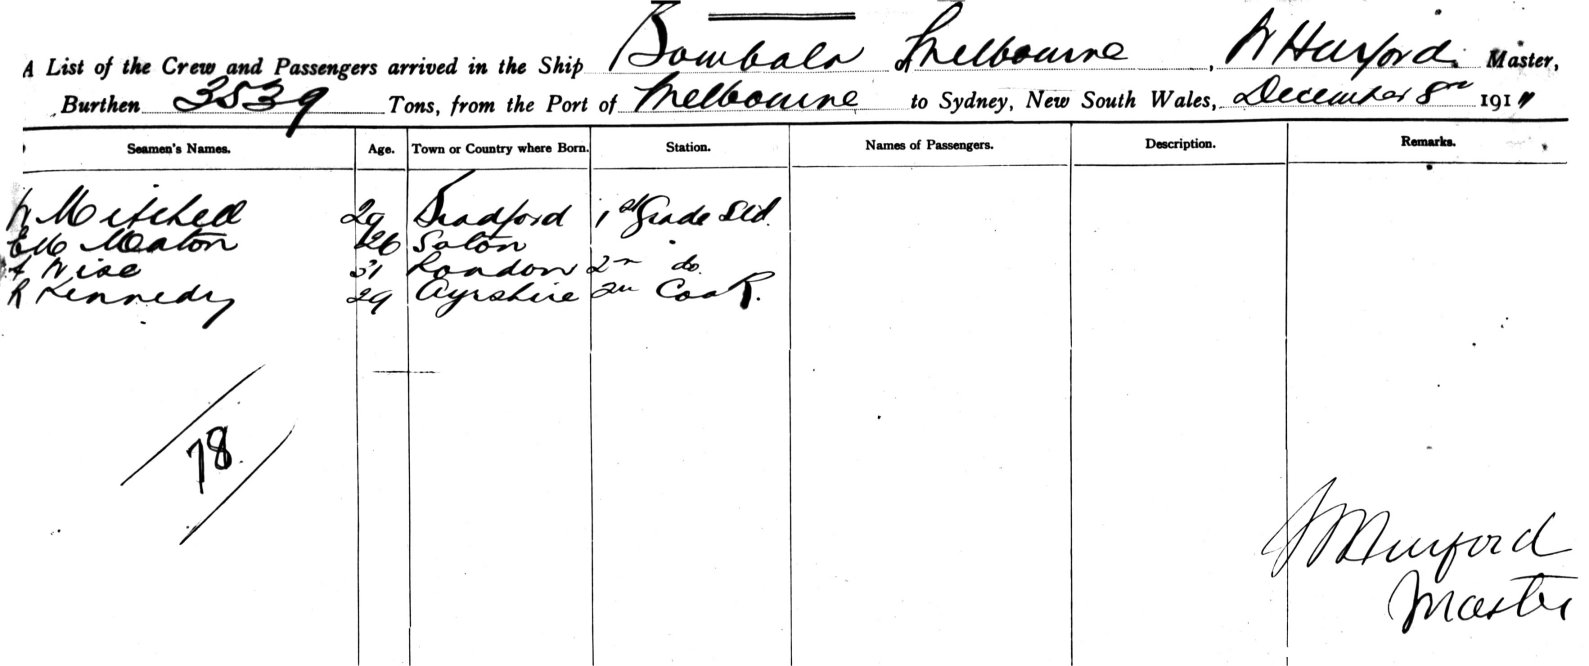 A List of the Crew and Passengers arrived in the Ship Bombala Melbourne, W Hurford. Master,
Burthen 3539 Tons, from the Port of Melbourne to Sydney, New South Wales, December 8th 1911
Seamen's Names. Age. Town or Country where Born. Station. Names of Passengers. Description. Remarks.
W Mitchell 29 Bradford 1st Grade Std.
Meaton 26 Luton
Wise 31 London 2nd do
R Kennedy 29 Ayrshire 2nd Cook.
78
Hurford
Master